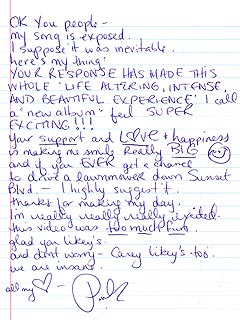 OK You people -
my song is exposed.
I suppose it was inevitable.
here's my thing:
YOUR RESPONSE HAS MADE THIS
WHOLE 'LIFE ALTERING, INTENSE,
AND BEAUTIFUL EXPERIENCE' I call
a "new album" feel SUPER
EXCITING!!!
Your support and LOVE + happiness
is making me smile Really BIG
and if you EVER get a chance
to drive a lawnmower down Sunset
Blvd. - I highly suggest it.
thanks for making my day.
I'm really really really excited.
this video was too much fun.
glad you likey's.
and dont worry - Carey likey's too.
we are insane.
all my